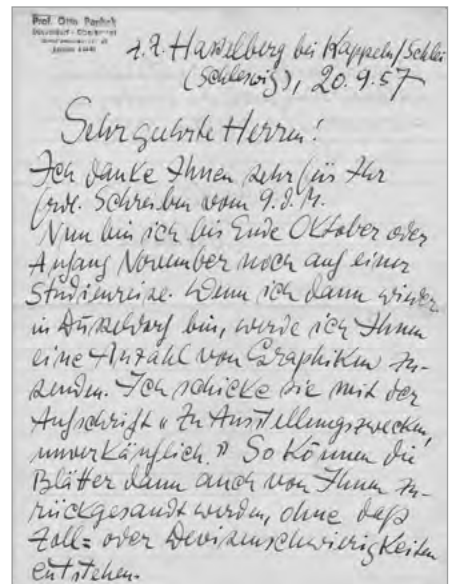 Prof. Otto Pankok
z. Z. Hasselberg bei Kappeln/Schlei
(Schleswig), 20.9.57
Sehr geehrte Herren!
Ich danke Ihnen sehr für Ihr
frdl. Schreiben vom 9. d. M.
Nun bin ich bis Ende Oktober oder
Anfang November noch auf einer
Studienreise. Wenn ich dann wieder
in Düsseldorf bin, werde ich Ihnen
eine Anzahl von Graphiken zu-
senden. Ich schicke sie mit der
Aufschrift "Zu Ausstellungszwecken,
unverkäuflich." So können die
Blätter dann auch von Ihnen zu-
rückgesandt werden, ohne daß
Zoll= oder Devisenschwierigkeiten
entstehen.